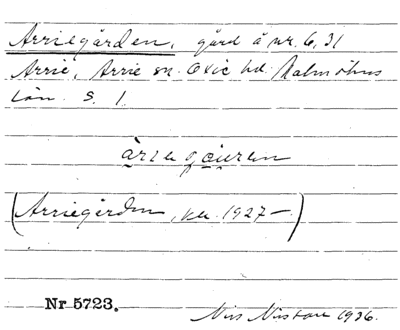 Arriegården, gård å nr. 6, 31
Arrie, Arrie sn. Oxie hd. Malmöhus
län. S. 1.
(Arriegården, 1927—)
Nr 5723.
Nils 1936.